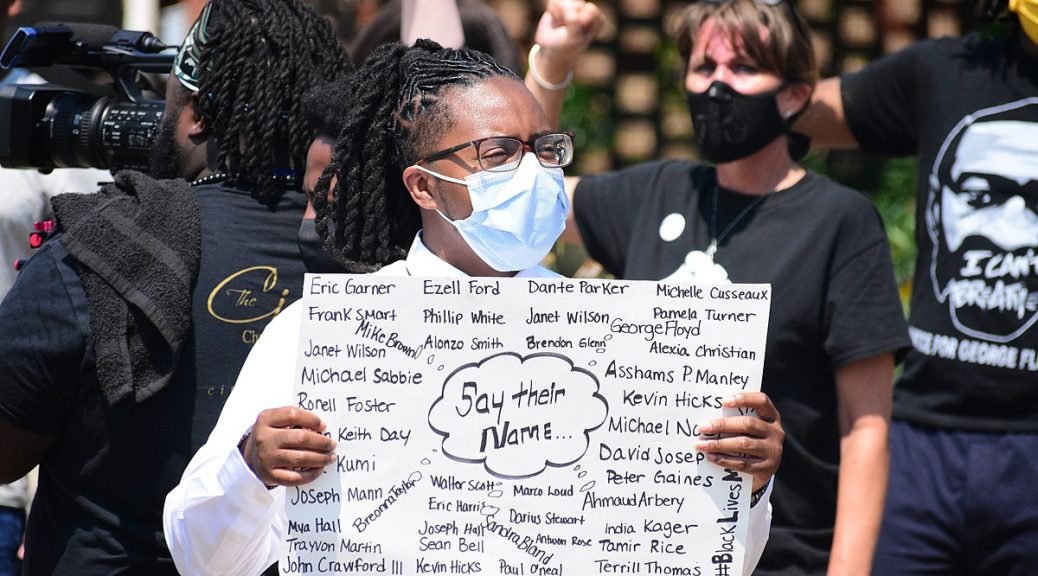 Eric Garner
Ezell Ford
Dante Parker
Michelle Cusseaux
Frank Smart
Phillip White
Janet Wilson
Pamela Turner
Mike Brown
George Floyd
Janet Wilson
Alonzo Smith
Brendon Glenn
Alexia Christian
Michael Sabbie
Asshams P. Manley
Say their
Name...
Ronell Foster
Kevin Hicks
Keith Day
Michael
David Josep
Kumi
Peter Gaines
Joseph Mann
Breonna Taylor
Walter Scott
Marco Loud
Ahmaud Arbery
Eric Harris
Darius Stewart
Mya Hall
Joseph Hall
Sandra Bland
Antwon Rose
India Kager
Trayvon Martin
Sean Bell
Tamir Rice
John Crawford III
Kevin Hicks
Paul O'neal
Terrill Thomas
#Black Lives
The
I CAN'T
BREATHE
FOR GEORGE